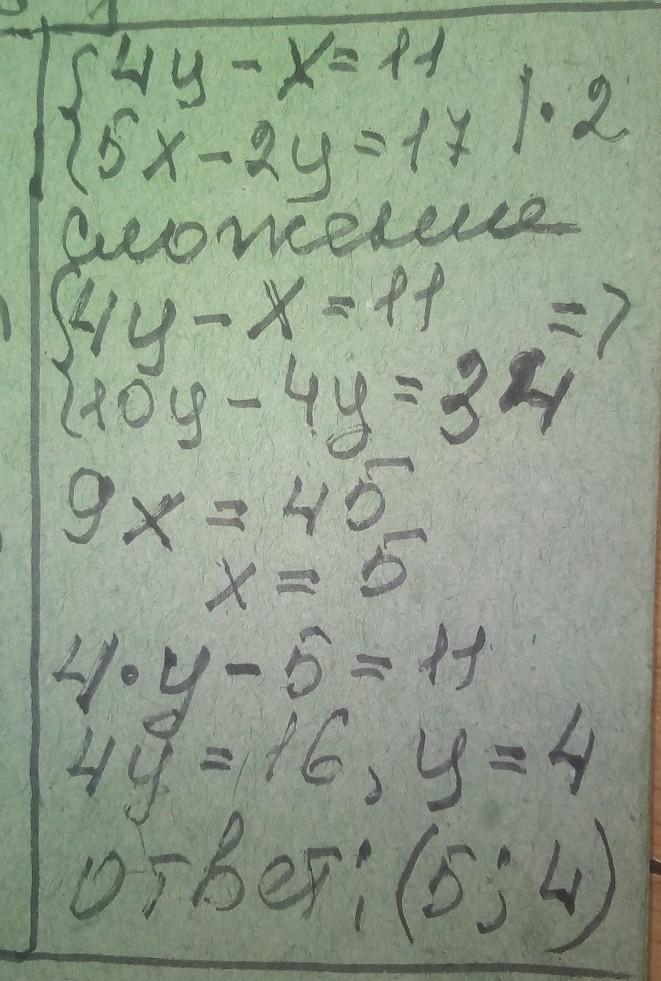 {4y - x = 11
{5x - 2y = 17 | · 2
сложение
{4y - x = 11 =>
{10y - 4y = 34
9x = 45
x = 5
4 · y - 5 = 11
4y = 16, y = 4
ответ: (5; 4)